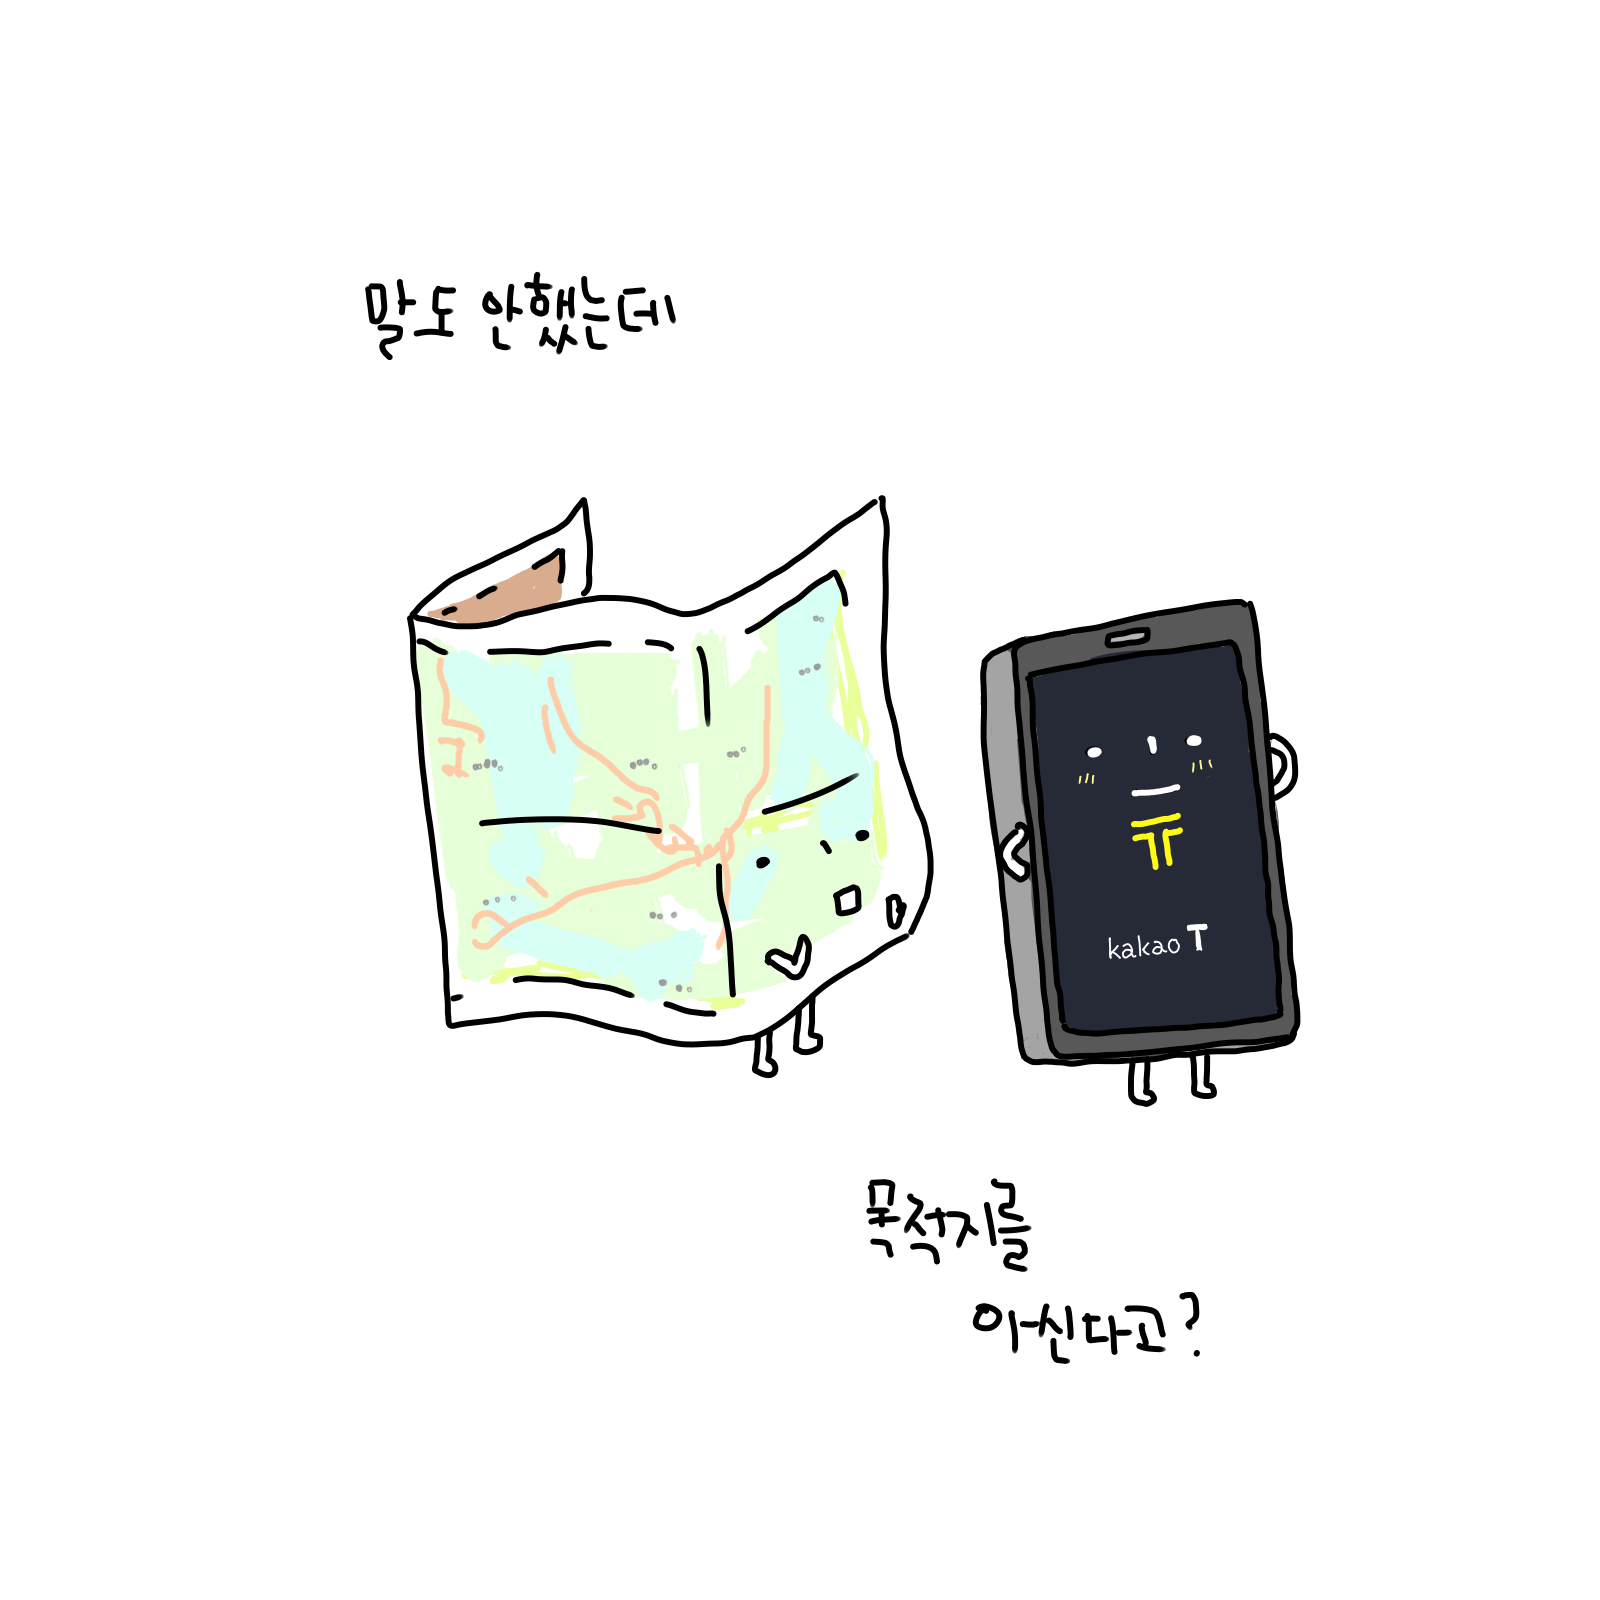 말도 안했는데
kakao T
목적지를
아신다고?